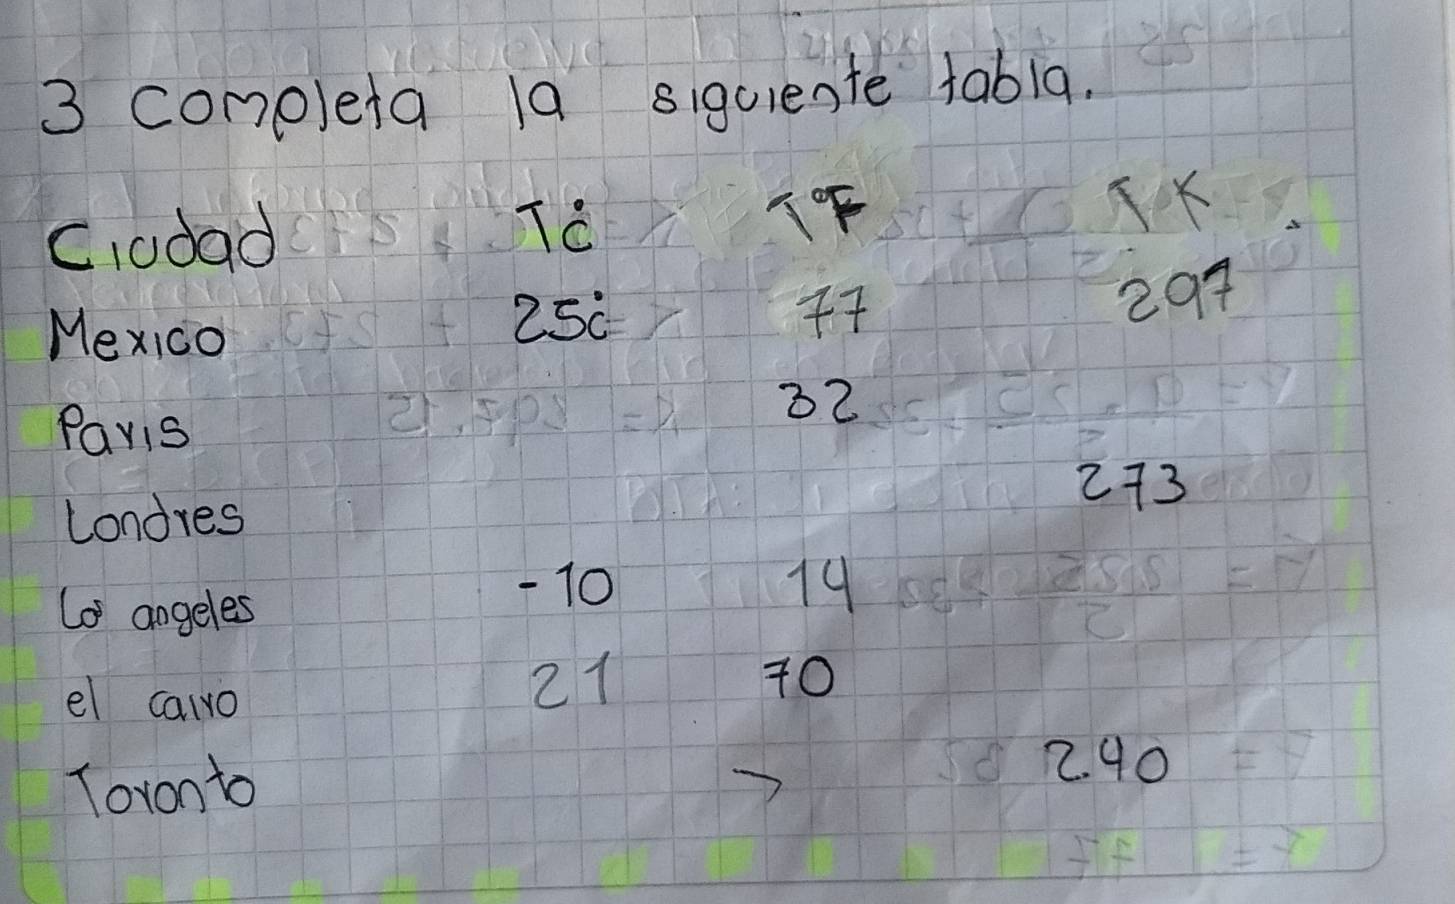 3 completa la siguiente tabla.
Ciudad T°C T°F T K.
Mexico 25°C 77 297
Paris 32
Londres 273
Los angeles -10 14
el cairo 21 70
Toronto 240